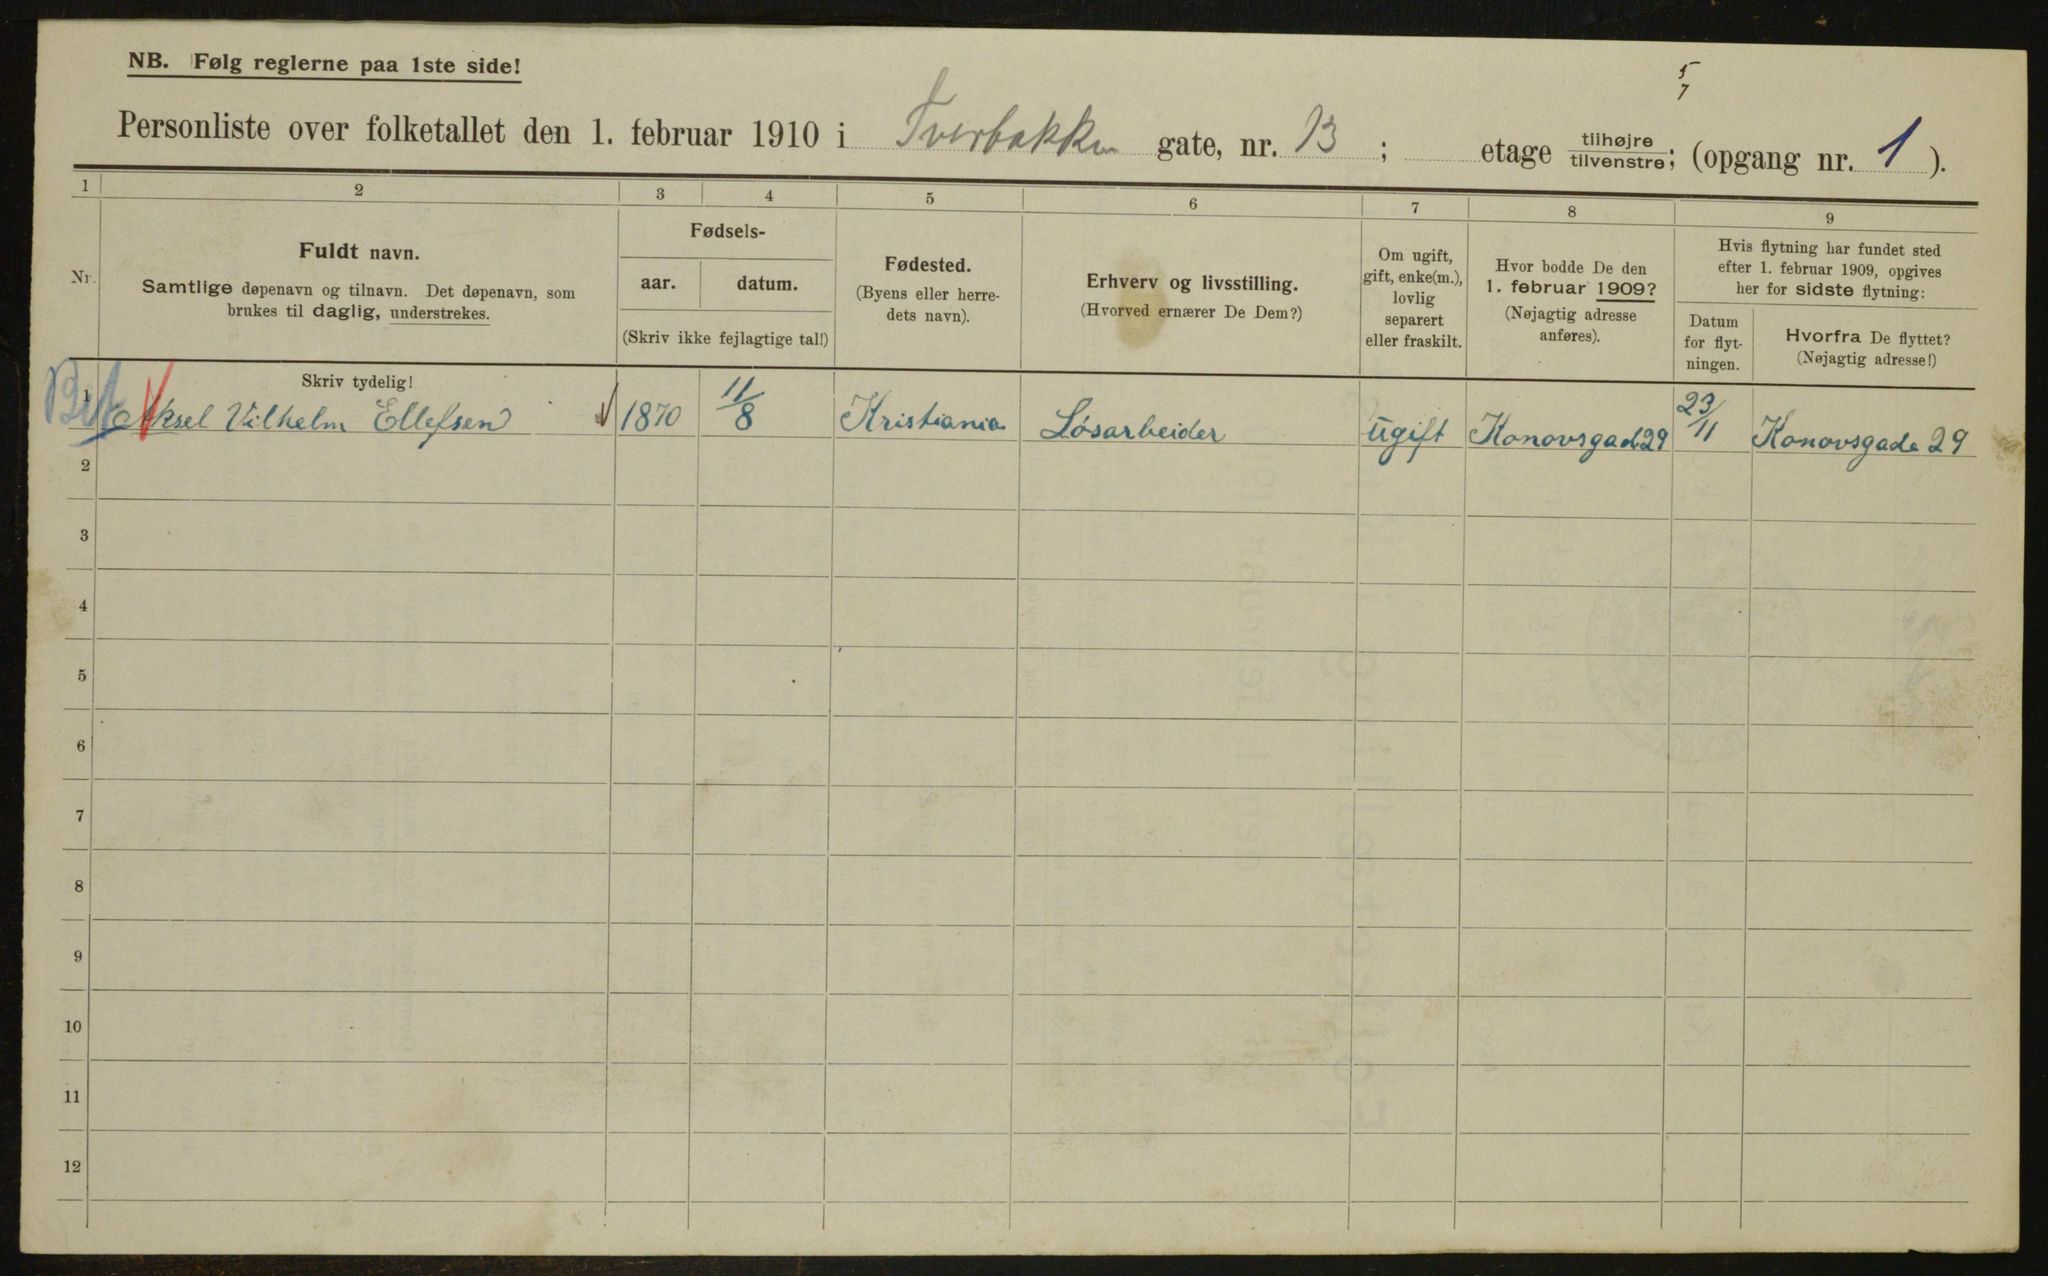 NB. Følg reglerne paa 1ste side!
5
7
Personliste over folketallet den 1. februar 1910 i Tverbakken gate, nr. 13 ; etage tilhøjre tilvenstre; (opgang nr. 1 ).
1 2 3 4 5 6 7 8 9
Nr.
Fuldt navn.
Samtlige døpenavn og tilnavn. Det døpenavn, som
brukes til daglig, understrekes.
Fødsels-
aar. datum.
(Skriv ikke fejlagtige tal!)
Fødested.
(Byens eller herre-
dets navn).
Erhverv og livsstilling.
(Hvorved ernærer De Dem?)
Om ugift,
gift, enke(m.),
lovlig
separert
eller fraskilt.
Hvor bodde De den
1. februar 1909?
(Nøjagtig adresse
anføres).
Hvis flytning har fundet sted
efter 1. februar 1909, opgives
her for sidste flytning:
Datum
for flyt-
ningen.
Hvorfra De flyttet?
(Nøjagtig adresse!)
Skriv tydelig!
1 Aksel Vilhelm Ellefsen 1870 11/8 Kristiania Løsarbeider ugift Konovsgad 29 23/11 Konovsgade 29
2
3
4
5
6
7
8
9
10
11
12